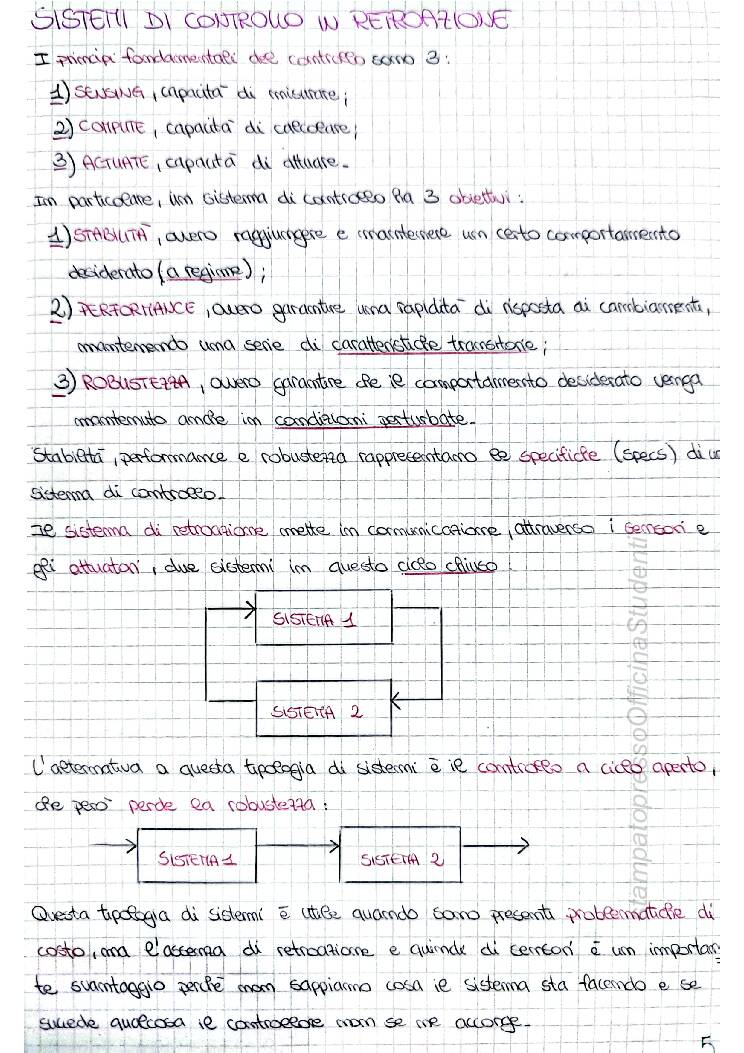 SISTEMI DI CONTROLLO IN RETROAZIONE
I principi fondamentali del controllo sono 3:
1) SENSING, capacità di misurare;
2) COMPUTE, capacità di calcolare;
3) ACTUATE, capacità di attuare.
In particolare, un sistema di controllo ha 3 obiettivi:
1) STABILITÀ, ovvero raggiungere e mantenere un certo comportamento
desiderato (a regime);
2) PERFORMANCE, ovvero garantire una rapidità di risposta ai cambiamenti,
mantenendo una serie di caratteristiche transitorie;
3) ROBUSTEZZA, ovvero garantire che il comportamento desiderato venga
mantenuto anche in condizioni perturbate.
Stabilità, performance e robustezza rappresentano le specifiche (specs) di un
sistema di controllo.
Il sistema di retroazione mette in comunicazione, attraverso i sensori e
gli attuatori, due sistemi in questo ciclo chiuso:
SISTEMA 1
SISTEMA 2
L'alternativa a questa tipologia di sistemi è il controllo a ciclo aperto,
che però perde la robustezza:
SISTEMA 1 SISTEMA 2
Questa tipologia di sistemi è utile quando sono presenti problematiche di
costo, ma l'assenza di retroazione e quindi di sensori è un importan-
te svantaggio perché non sappiamo cosa il sistema sta facendo e se
succede qualcosa il controllore non se ne accorge.
5
tampatopressoOfficinaStudenti